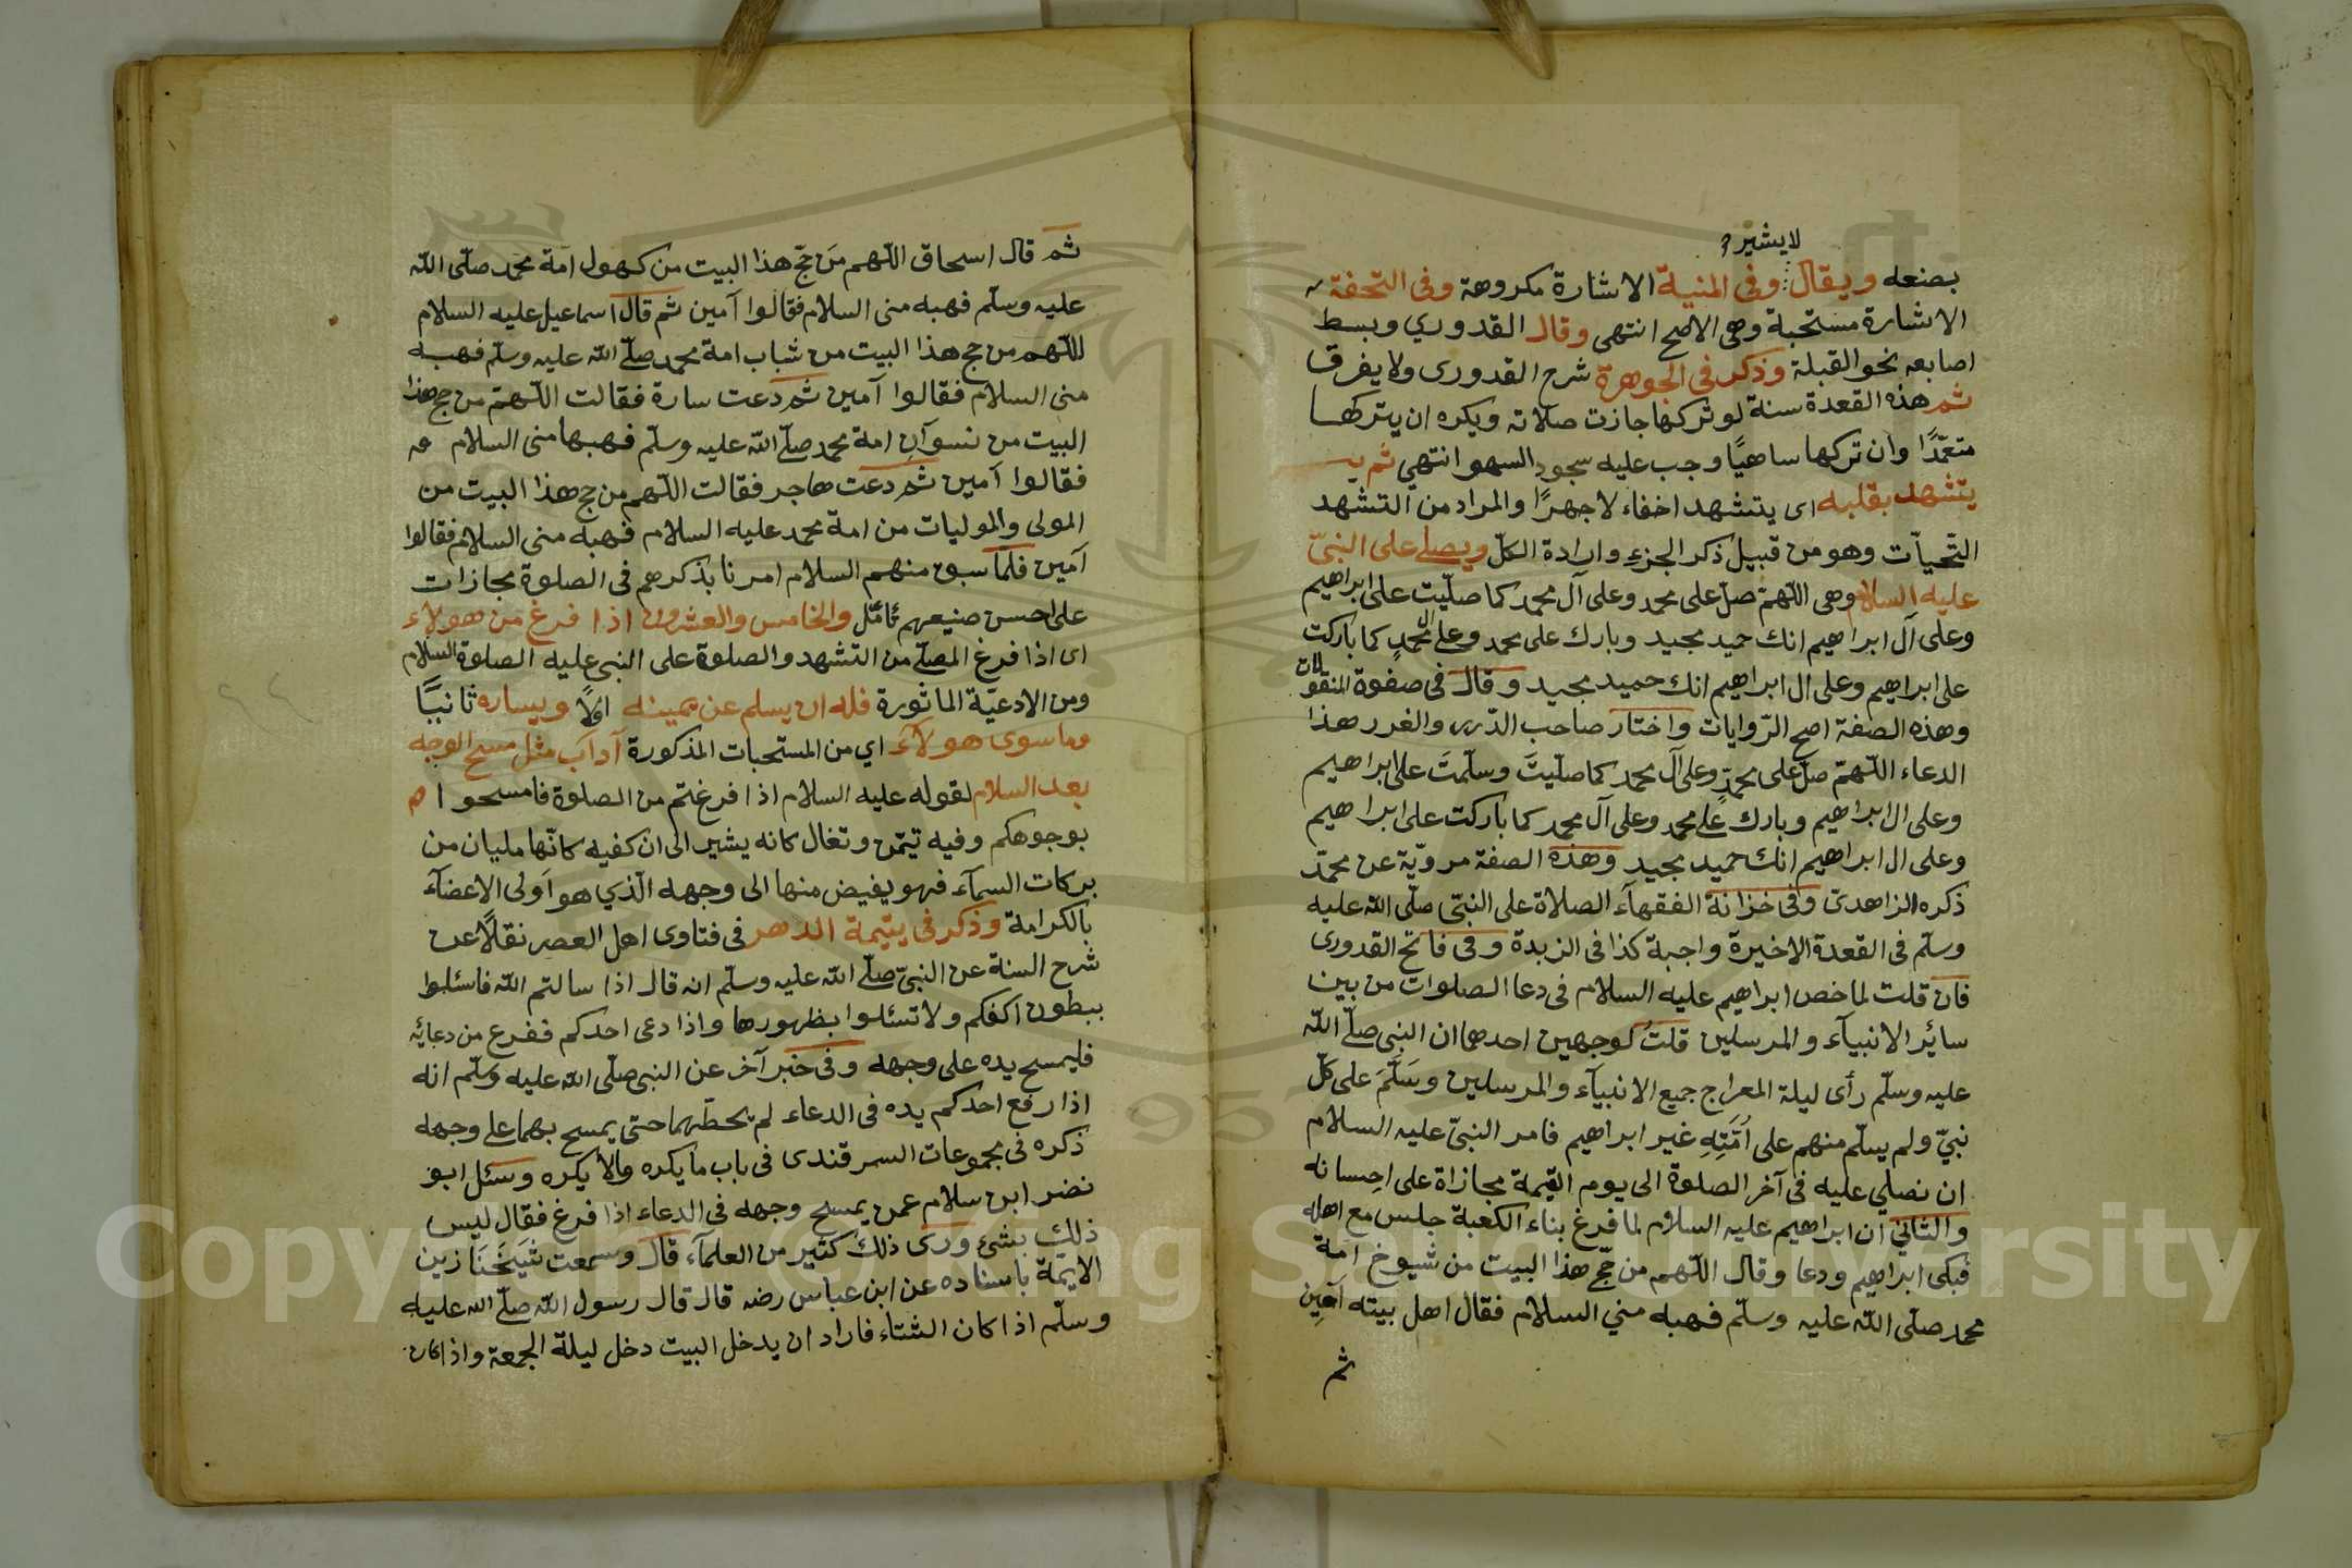 لا يشير
بصنعه ويقال وفى المنية الاشارة مكروهة وفى التحفة
الاشارة مستحبة وهى الاصح انتهى وقال القدوري وبسط
اصابعه نحو القبلة وذكر فى الجوهرة شرح القدورى ولا يفرق
ثم هذه القعدة سنة لو تركها جازت صلاته ويكره ان يتركها
متعمّدًا وان تركها ساهيًا وجب عليه سجود السهو انتهي ثم يـ
يتشهد بقلبه اى يتشهد اخفاء لا جهرًا والمراد من التشهد
التّحيآت وهو من قبيل ذكر الجزء وارادة الكلّ ويصلے على النبىّ
عليه السلام وهى اللّهمّ صلّ على محمد وعلى آل محمد كما صلّيت على ابراهيم
وعلى آل ابراهيم انك حميد مجيد وبارك على محمد وعلے ال محمد كما باركت
على ابراهيم وعلى ال ابراهيم انك حميد مجيد وقال فى صفوة المنقولات
وهذه الصفة اصح الرّوايات واختار صاحب الدّرر والغرر هذا
الدعاء اللّهمّ صلّ على محمدٍ وعلى آل محمد كما صلّيتَ وسلّمتَ على ابراهيم
وعلى ال ابراهيم وبارك علے محمد وعلى آل محمد كما باركت على ابراهيم
وعلى ال ابراهيم انك حميد مجيد وهذه الصفة مرويّة عن محمّد
ذكره الزاهدى وفى خزانة الفقهآء الصلاة على النبىّ صلّى الله عليه
وسلّم فى القعدة الاخيرة واجبة كذا فى الزبدة وفى فاتح القدورى
فان قلت لما خص ابراهيم عليه السلام فى دعا الصلوات من بين
سائر الانبيآء والمرسلين قلتُ لوجهين احدها ان النبى صلّے الله
عليه وسلّم رأى ليلة المعراج جميع الانبيآء والمرسلين وسَلَّمَ على كلّ
نبيّ ولم يسلّم منهم على اُمّتِهِ غير ابراهيم فامر النبىّ عليه السلام
ان نصلي عليه فى آخر الصلوة الى يوم القيمة مجازاة على احِسانه
والثاني ان ابراهيم عليه السلام لما فرغ بناء الكعبة جلس مع اهله
فبكى ابراهيم ودعا وقال اللّهم من حجّ هذا البيت من شيوخ امة
محمد صلّى الله عليه وسلّم فهبه مني السلام فقال اهل بيته آمين
ثم
ثم قال اسحاق اللّهم مَن حجّ هذا البيت من كهول امة محمد صلّى الله
عليه وسلّم فهبه منى السلام فقالوا آمين ثم قال اسماعيل عليه السلام
اللّهم من حج هذا البيت من شباب امة محمد صلّے الله عليه وسلّم فهبه
منى السلام فقالوا آمين ثم دعت سارة فقالت اللّهمّ من حج هذا
البيت من نسوآن امة محمد صلّے الله عليه وسلّم فهبها منى السلام
فقالوا آمين ثم دعت هاجر فقالت اللّهم من حج هذا البيت من
المولى والموليات من امة محمد عليه السلام فهبه منى السلام فقالوا
آمين فلمّا سبق منهم السلام امرنا بذكرهم فى الصلوة مجازات
على احسن صنيعهم تأمّل والخامس والعشرون اذا فرغ من هولاء
اى اذا فرغ المصلّے من التشهد والصلوة على النبى عليه الصلوة السلام
ومن الادعيّة الماثورة فله ان يسلم عن يمينه اوّلاً ويساره ثانيًا
وما سوى هولآء اي من المستحبات المذكورة آداب مثل مسح الوجه
بعد السلام لقوله عليه السلام اذا فرغتم من الصلوة فامسحوا
بوجوهكم وفيه تيمّن وتفال كانه يشير الى ان كفيه كانّها مليان من
بركات السمآء فهو يفيض منها الى وجهه الّذي هو اَولى الاعضآء
بالكرامة وذكر فى يتيمة الدهر فى فتاوى اهل العصر نقلاً عن
شرح السنة عن النبىّ صلّے الله عليه وسلّم انه قال اذا سالتم الله فاسئلوا
ببطون اكفكم ولا تسئلوا بظهورها واذا دعى احدكم ففرغ من دعائه
فليمسح يده على وجهه وفى خبر آخر عن النبى صلّى الله عليه وسلّم انه
اذا رفع احدكم يده فى الدعاء لم يحطّهما حتى يمسح بهما علے وجهه
ذكره فى مجموعات السمرقندى فى باب ما يكره والا يكره وسئل ابو
نضر ابن سلام عمن يمسح وجهه فى الدعاء اذا فرغ فقال ليس
ذلك بشئ ورى ذلك كثير من العلمآء قال وسمعت شَيخَنَا زين
الايمّة باسناده عن ابن عباس رضه قال قال رسول الله صلّے الله عليه
وسلّم اذا كان الشتاء فاراد ان يدخل البيت دخل ليلة الجمعة واذا كان
Copyright © King Saud University